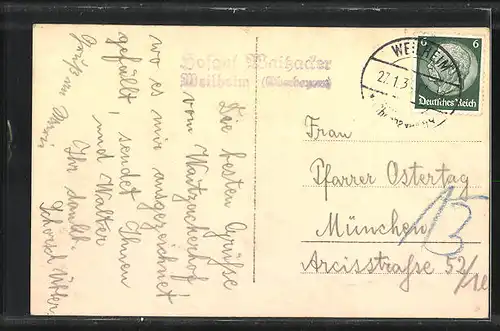 Hofgut Waitzacker
Weilheim (Oberbayern)
WEILHEIM
27.1.3
6
6
Deutsches Reich
Die besten Grüsse
vom Waitzackerhof
wo es mir ausgezeichnet
gefällt, sendet Ihnen
und Walter
Ihr dankb.
Schorsch
Frau
Pfarrer Ostertag
München
Arcisstraße 52/